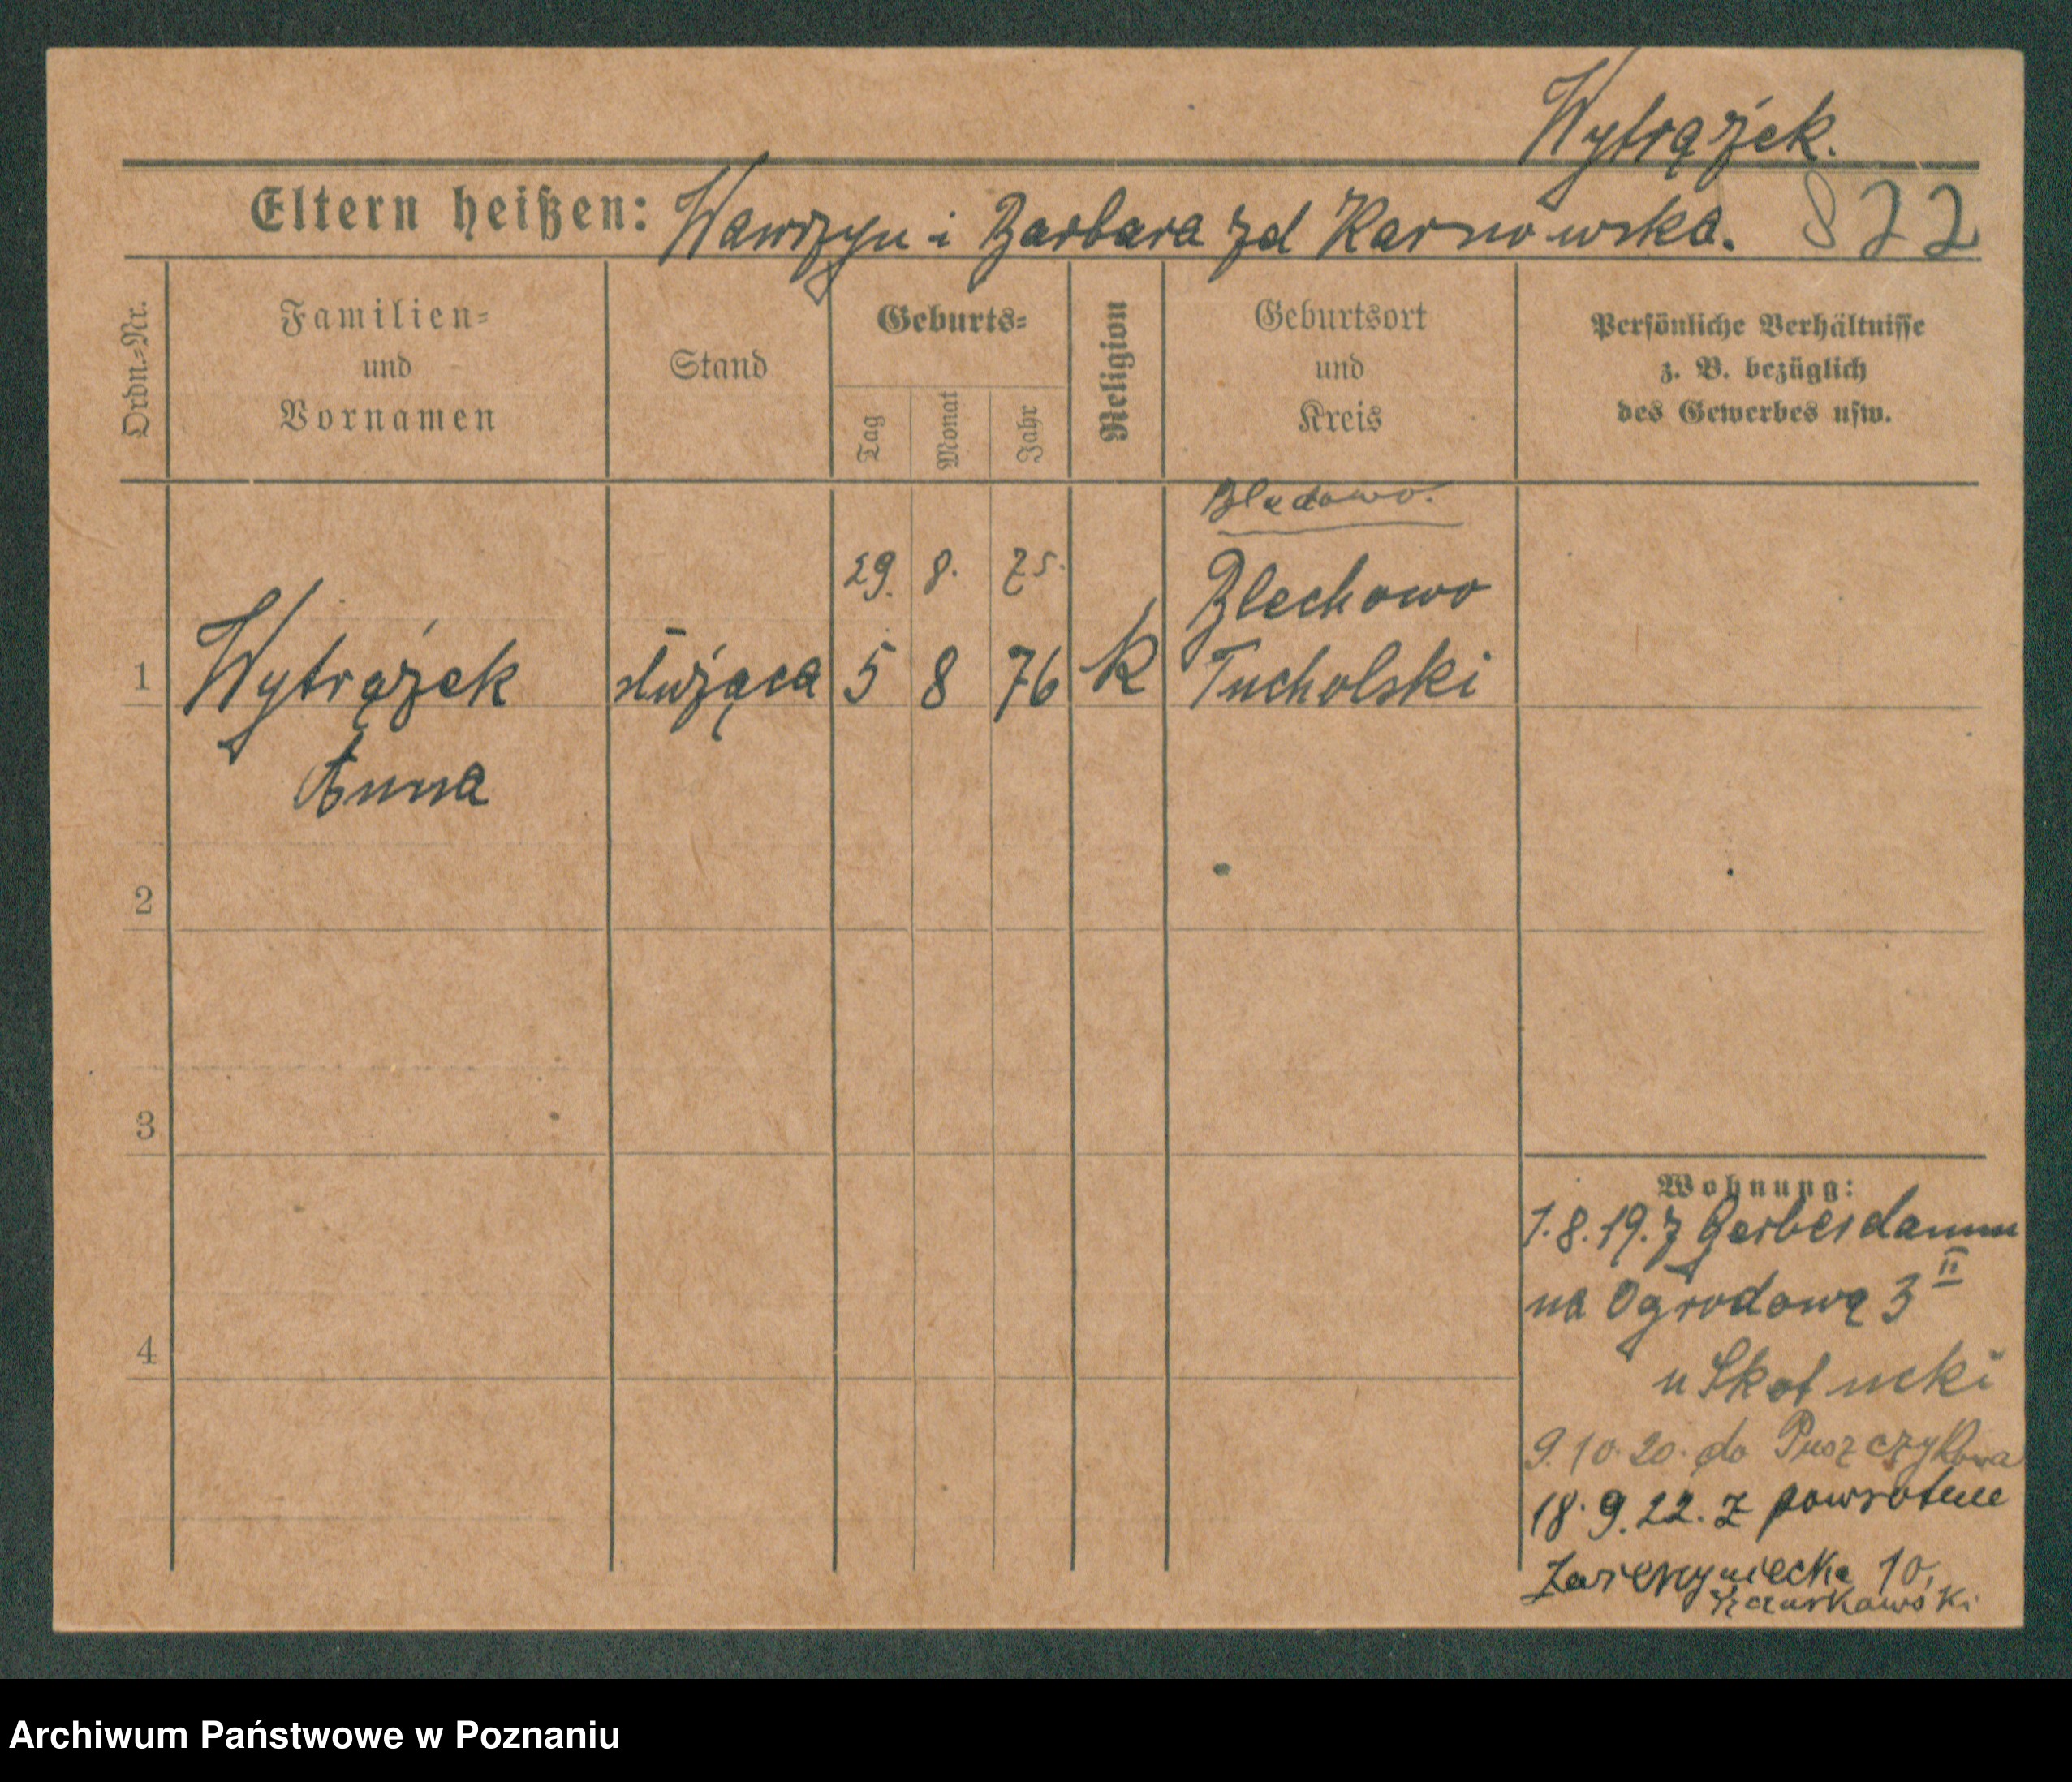 Wytrążek.
Eltern heißen: Wawrzyn i Barbara zd Karnowska. 822
Ordn.=Nr.
Familien=
und
Vornamen
Stand
Geburts=
Tag
Monat
Jahr
Religion
Geburtsort
und
Kreis
Persönliche Verhältnisse
z. B. bezüglich
des Gewerbes usw.
Bladowo.
29. 8. 75.
Blechowo
1 Wytrążek służąca 5 8 76 k Tucholski
Anna
2
3
4
Wohnung:
1.8.19. z Gerberdamm
na Ogrodową 3 II
u Skotnicki
9.10.20. do Puszczykowa
18.9.22. z powrotem
10,
Archiwum Państwowe w Poznaniu